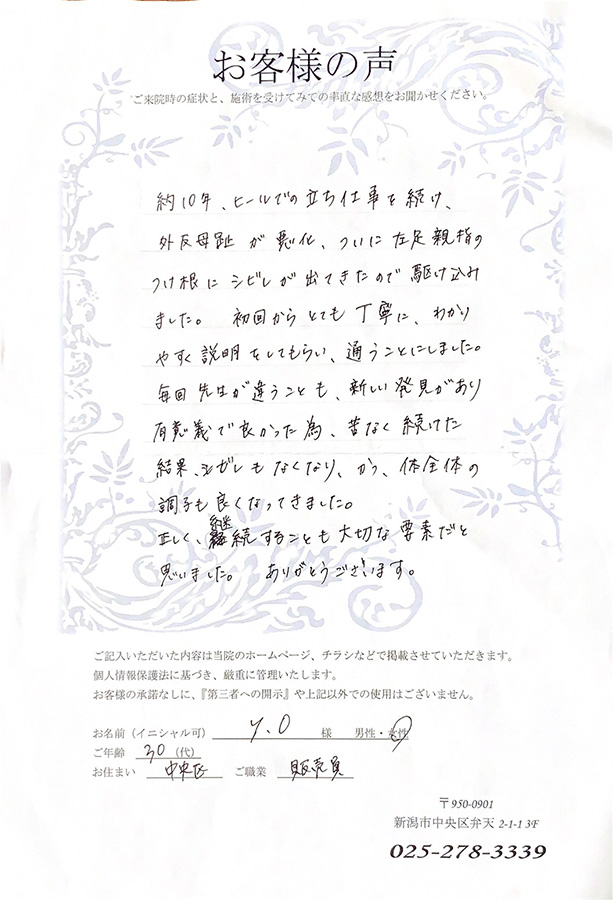 お客様の声
ご来院時の症状と、施術を受けてみての率直な感想をお聞かせください。
約10年、ヒールでの立ち仕事を続け、
外反母趾が悪化、ついに左足親指の
つけ根にシビレが出てきたので駆け込み
ました。 初回からとても丁寧に、わかり
やすく説明をしてもらい、通うことにしました。
毎回先生が違うことも、新しい発見があり
有意義で良かった為、苦なく続けた
結果、シビレもなくなり、かつ、体全体の
調子も良くなってきました。
正しく、継続することも大切な要素だと
思いました。 ありがとうございます。
ご記入いただいた内容は当院のホームページ、チラシなどで掲載させていただきます。
個人情報保護法に基づき、厳重に管理いたします。
お客様の承諾なしに、『第三者への開示』や上記以外での使用はございません。
お名前(イニシャル可) Y.O 様 男性・女性
ご年齢 30 (代)
お住まい 中央区 ご職業 販売員
〒950-0901
新潟市中央区弁天 2-1-1 3F
025-278-3339